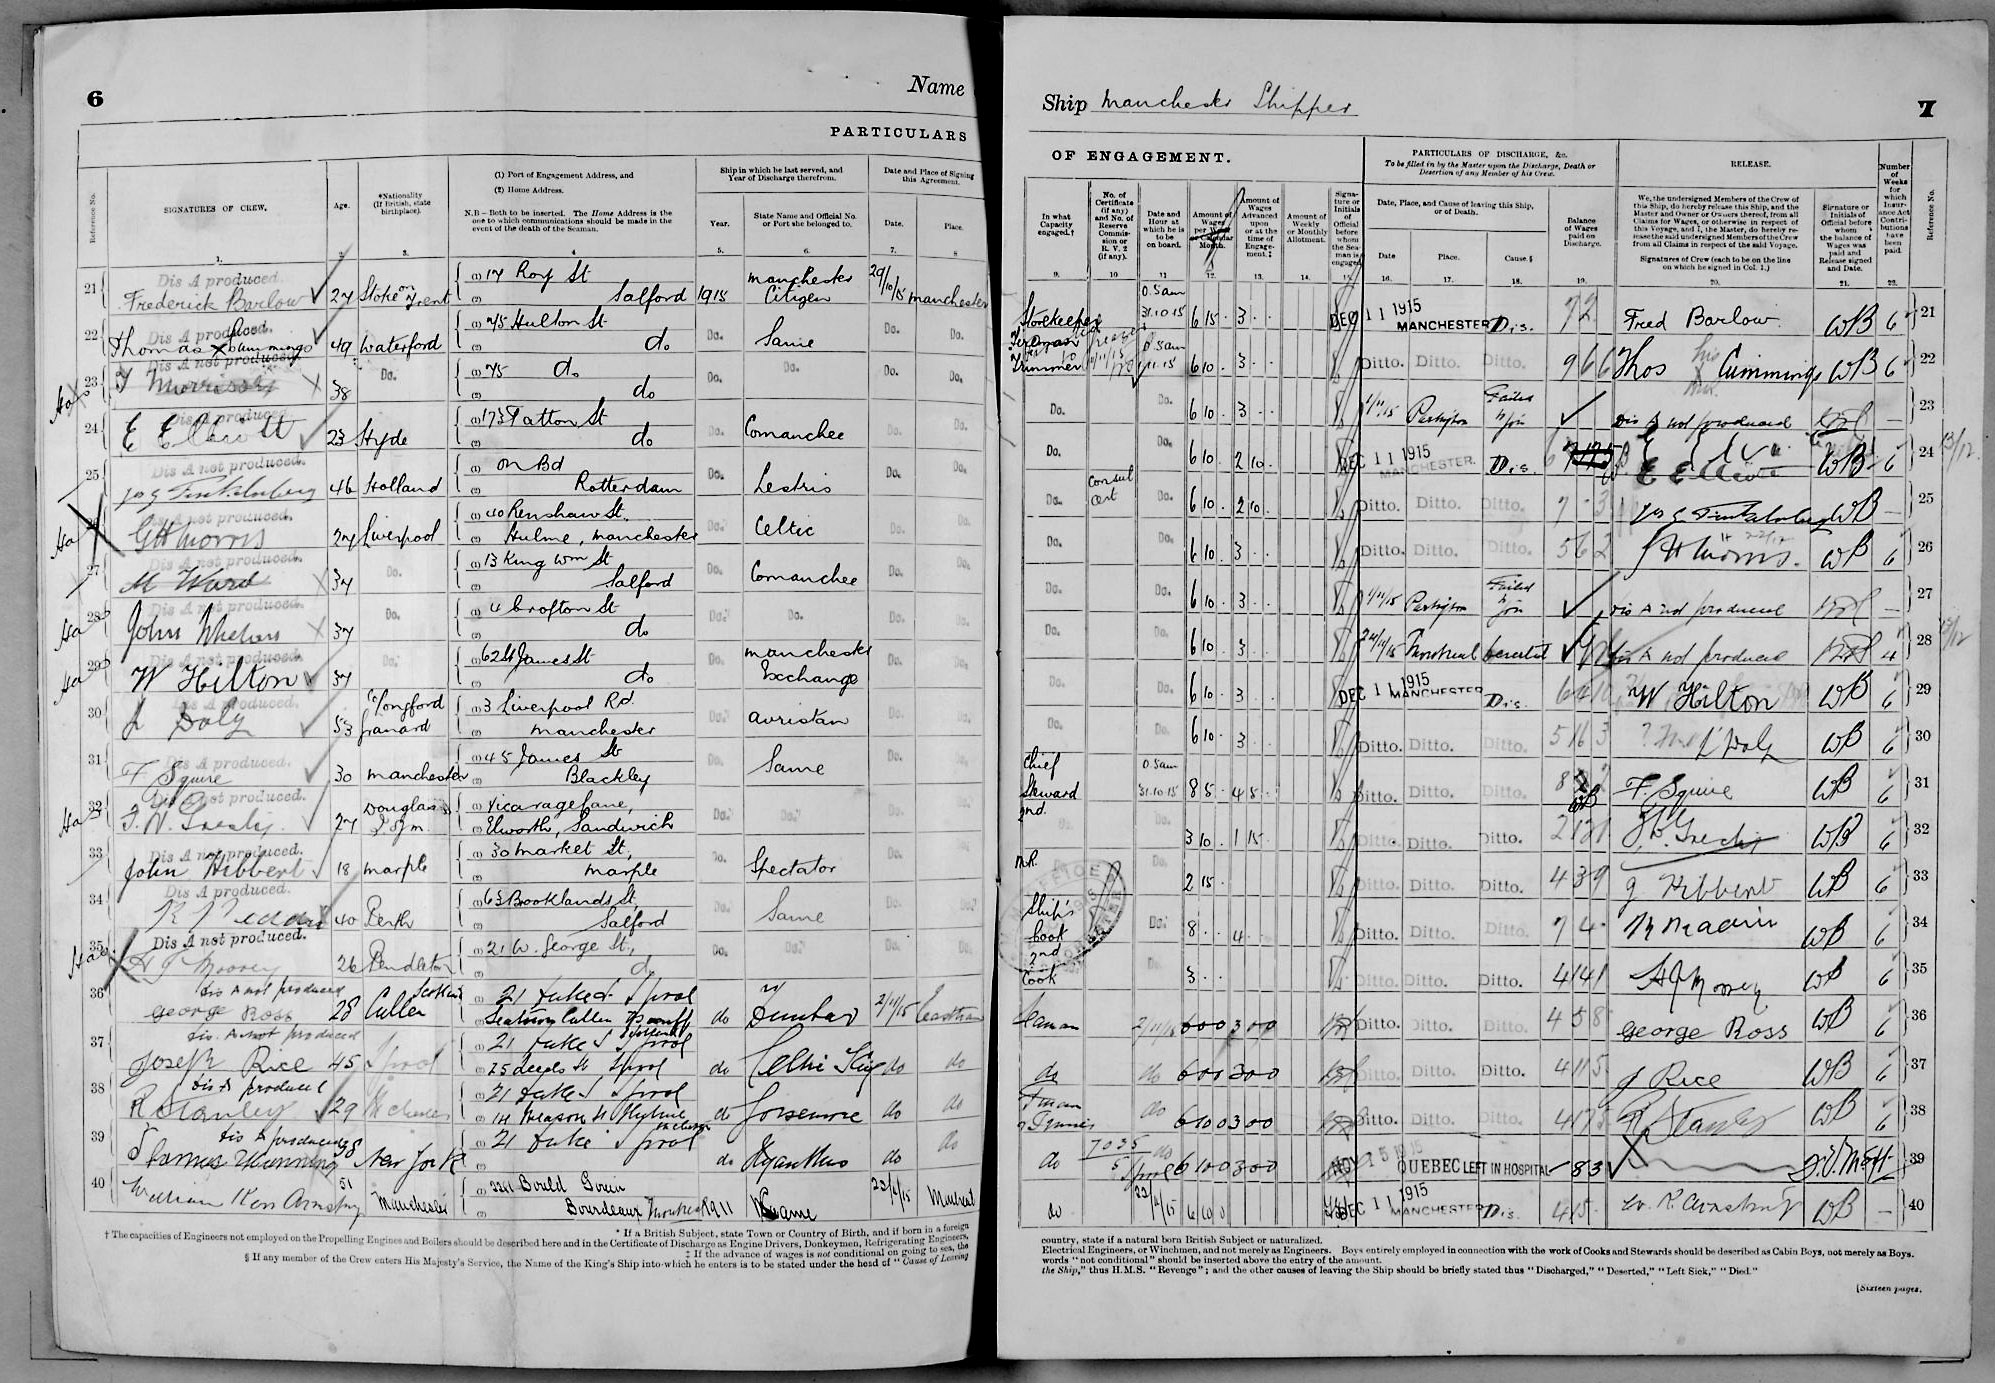 6
Name
PARTICULARS
Reference No.
SIGNATURES OF CREW.
Age.
*Nationality
(If British, state
birthplace).
(1) Port of Engagement Address, and
(2) Home Address.
N.B – Both to be inserted. The Home Address is the
one to which communications should be made in the
event of the death of the Seaman.
Ship in which he last served, and
Year of Discharge therefrom.
Year.
State Name and Official No.
or Port she belonged to.
Date and Place of Signing
this Agreement.
Date.
Place.
1. 2. 3. 4 5. 6. 7. 8
21 Dis A produced. Frederick Barlow 27 Stoke on Trent (1) 17 Roy St (2) Salford 1915 Manchester Citizen 29/10/15 Manchester
22 Dis A produced. Thomas X Cummings 49 Waterford (1) 75 Hulton St (2) do Do. Same Do. Do.
23 Dis A not produced. T Morrissey 38 Do. (1) 75 do (2) do Do. Do. Do. Do.
24 Dis A produced. E Elliott 23 Hyde (1) 173 Tatton St (2) do Do. Comanchee Do. Do.
25 Dis A not produced. 46 Holland (1) On Bd (2) Rotterdam Do. Lestris Do. Do.
26 Dis A not produced. G H Morris 27 Liverpool (1) 40 Renshaw St. (2) Hulme, Manchester Do. Celtic Do. Do.
27 Dis A not produced. M Ward 34 Do. (1) 13 King Wm St (2) Salford Do. Comanchee Do. Do.
28 Dis A not produced. John Whelan 37 Do. (1) 4 Crofton St (2) do Do. Do. Do. Do.
29 Dis A not produced. W Hilton 37 Do. (1) 62 St James St (2) do Do. Manchester Exchange Do. Do.
30 Dis A produced. J Daly 53 Co Longford Granard (1) 3 Liverpool Rd. (2) Manchester Do. Avristan Do. Do.
31 Dis A produced. F Squire 30 Manchester (1) 45 James St (2) Blackley Do. Same Do. Do.
32 Dis A not produced. 27 Douglas I of m (1) Vicarage Lane, (2) Elworth, Sandwich Do. Do. Do. Do.
33 Dis A not produced. John Hibbert 18 Marple (1) 30 Market St, (2) Marple Do. Spectator Do. Do.
34 Dis A produced. 40 Perth (1) 63 Brooklands St, (2) Salford Do. Same Do. Do.
35 Dis A not produced. 26 Pendleton (1) 21 W. George St, (2) do Do. Do. Do. Do.
36 Dis A not produced George Ross 28 Cullen Scotland (1) 21 Duke St Lpool (2) Seatown Cullen Banff Scotland do Dunbar 2/11/15 Eastham
37 Dis. A not produced Joseph Rice 45 Lpool (1) 21 Duke St Lpool (2) Lpool do Celtic King do do
38 Dis A produced R Stanley 29 (1) 21 Duke St Lpool (2) do Gorsemore do do
39 Dis A produced 38 New York (1) 21 Duke St Lpool (2) do do do
40 William Kerr Armstrong 51 Manchester (1) (2) Bourdeaux Montreal 1911 Same Montreal
* If a British Subject, state Town or Country of Birth, and if born in a foreign
† The capacities of Engineers not employed on the Propelling Engines and Boilers should be described here and in the Certificate of Discharge as Engine Drivers, Donkeymen, Refrigerating Engineers,
‡ If the advance of wages is not conditional on going to sea, the
§ If any member of the Crew enters His Majesty's Service, the Name of the King's Ship into which he enters is to be stated under the head of "Cause of Leaving
Ship Manchester Shipper
7
OF ENGAGEMENT.
In what
Capacity
engaged.†
No. of
Certificate
(if any)
and No. of
Reserve
Commis-
sion or
R. V. 2
(if any).
Date and
Hour at
which he is
to be
on board.
Amount of
Wages
per Week
or Calendar
Month.
Amount of
Wages
Advanced
upon
or at the
time of
Engage-
ment.‡
Amount of
Weekly
or Monthly
Allotment.
Signa-
ture or
Initials
of
Official
before
whom
the Sea-
man is
engaged
PARTICULARS OF DISCHARGE, &c.
To be filled in by the Master upon the Discharge, Death or
Desertion of any Member of his Crew.
Date, Place, and Cause of leaving this Ship,
or of Death.
Date
Place.
Cause.§
Balance
of Wages
paid on
Discharge.
RELEASE.
We, the undersigned Members of the Crew of
this Ship, do hereby release this Ship, and the
Master and Owner or Owners thereof, from all
Claims for Wages, or otherwise in respect of
this Voyage, and I, the Master, do hereby re-
lease the said undersigned Members of the Crew
from all Claims in respect of the said Voyage.
Signatures of Crew (each to be on the line
on which he signed in Col. 1.)
Signature or
Initials of Official before
whom
the balance of
Wages was
paid and
Release signed
and Date.
Number
of
Weeks
for
which
Insur-
ance Act
Contri-
butions
have
been
paid.
Reference No.
9. 10 11. 12. 13. 14. 15. 16. 17. 18. 19. 20. 21. 22.
Storekeeper 0.5am 31.10.15 6 15 . 3 . . DEC 11 1915 MANCHESTER Dis. 72 Fred Barlow WB 6 21
Fireman Trimmer 0.5am 1.11.15 6 10 . 3 . . Ditto. Ditto. Ditto. 9 6 6 Thos his X mark Cummings WB 6 22
Do. Do. 6 10 . 3 . . 1/11/15 Partington Failed to join Dis A not produced — 23
Do. Do. 6 10 . 2 10 . DEC 11 1915 MANCHESTER. Dis. E Elliott WB 6 24 13/12
Do. Consul Cert Do. 6 10 . 2 10 . Ditto. Ditto. Ditto. 7 - 3 WB — 25
Do. Do. 6 10 . 3 . . Ditto. Ditto. Ditto. 5 6 2 G H Morris. WB 6 26
Do. Do. 6 10 . 3 . . 1/11/15 Partington Failed to join Dis A not produced — 27
Do. Do. 6 10 . 3 . . 24/11/15 Montreal Deserted Dis A not produced 4 28 13/12
Do. Do. 6 10 . 3 . . DEC 11 1915 MANCHESTER Dis. W Hilton WB 6 29
Do. Do. 6 10 . 3 . . Ditto. Ditto. Ditto. 5 16 3 J Daly WB 6 30
Chief Steward 0.5am 31.10.15 8 5 . 4 5 . Ditto. Ditto. Ditto. F. Squire WB 6 31
2nd. Do. Do. 3 10 . 1 15 . Ditto. Ditto. Ditto. WB 6 32
M.R. Do. Do. 2 15 . Ditto. Ditto. Ditto. 4 3 9 J Hibbert WB 6 33
Ship's Cook Do. 8 . . 4 . . Ditto. Ditto. Ditto. 7 4 - WB 6 34
2nd Cook Do. 3 . . Ditto. Ditto. Ditto. 4 14 1 WB 6 35
Seaman 2/11/15 6 0 0 3 0 0 Ditto. Ditto. Ditto. 4 5 8 George Ross WB 6 36
do do 6 0 0 3 0 0 Ditto. Ditto. Ditto. 4 11 5 J Rice WB 6 37
Fman Trimmer do 6 10 0 3 0 0 Ditto. Ditto. Ditto. 4 17 3 R Stanley WB 6 38
do 7035 Lpool do 6 10 0 3 0 0 NOV 15 1915 QUEBEC LEFT IN HOSPITAL 8 3 39
do 6 10 0 DEC 11 1915 MANCHESTER Dis. 4 15 - W. K. Armstrong WB — 40
country, state if a natural born British Subject or naturalized.
Electrical Engineers, or Winchmen, and not merely as Engineers. Boys entirely employed in connection with the work of Cooks and Stewards should be described as Cabin Boys, not merely as Boys.
words "not conditional" should be inserted above the entry of the amount.
the Ship," thus H.M.S. "Revenge"; and the other causes of leaving the Ship should be briefly stated thus "Discharged," "Deserted," "Left Sick," "Died."
[Sixteen pages.